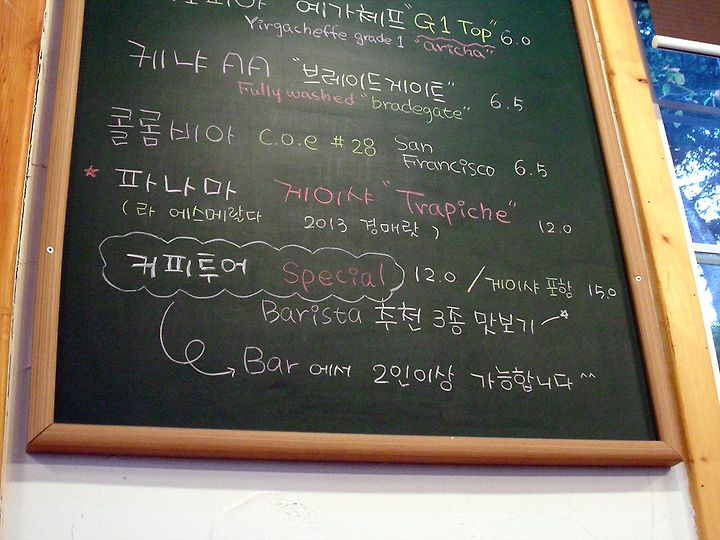 예가체프 "G1 Top" 6.0
Yirgacheffe grade 1 "aricha"
케냐 AA "브레이드게이트" 6.5
Fully washed "bradegate"
콜롬비아 C.O.e #28 San Francisco 6.5
* 파나마 게이샤 "Trapiche" 12.0
(라 에스메랄다 2013 경매랏)
커피투어 Special 12.0 / 게이샤 포함 15.0
Barista 추천 3종 맛보기 *
Bar에서 2인이상 가능합니다^^